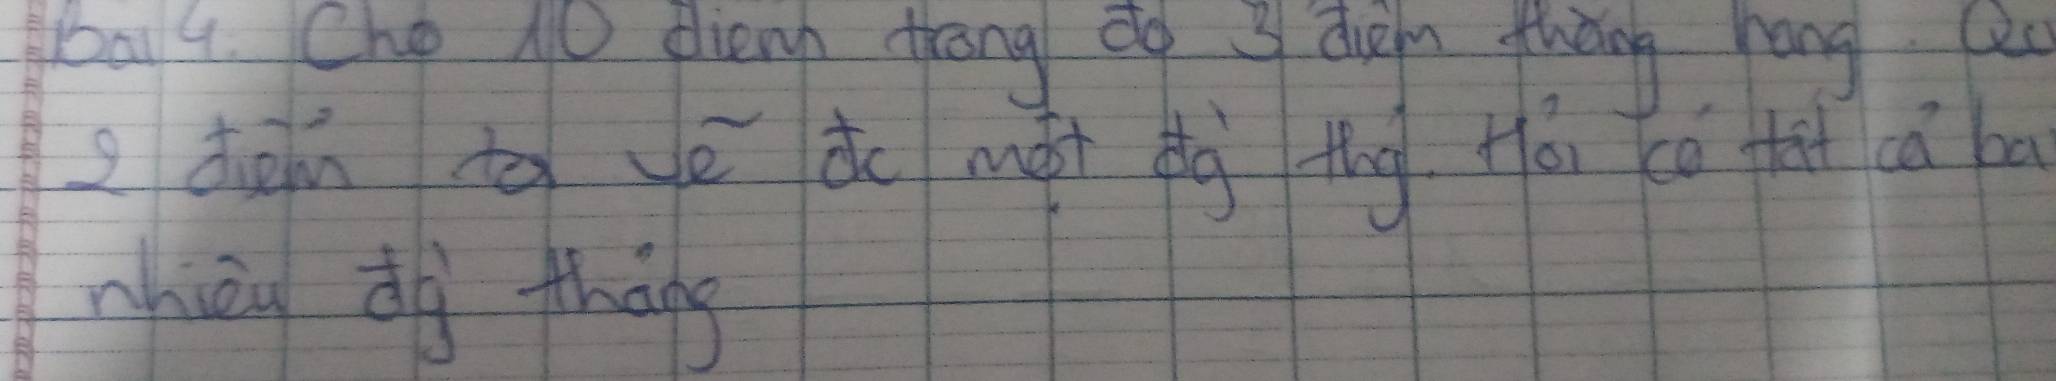 bài 4. Cho 10 điểm trong đó 3 điểm thẳng hàng. Qu
2 điểm ta vẽ đc một đg thg. Hỏi có tất cả ba
nhiêu đg thẳng